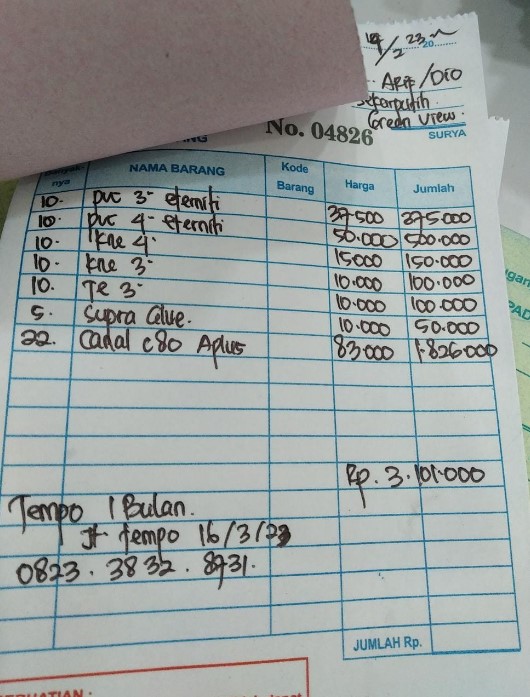 /2 23
20........
ARIF/DIO
Green View.
No. 04826
SURYA
nya NAMA BARANG Kode Barang Harga Jumlah
10. PVC 3" eterniti 37.500 375.000
10. PVC 4" eterniti 50.000 500.000
10. Kne 4" 15.000 150.000
10. Kne 3" 10.000 100.000
10. Te 3" 10.000 100.000
5. Supra Glue. 10.000 50.000
22. C80 Aplus 83.000 1.826.000
Rp. 3.101.000
Tempo 1 Bulan.
Jt tempo 16/3/23
0823.3832.8731.
JUMLAH Rp.